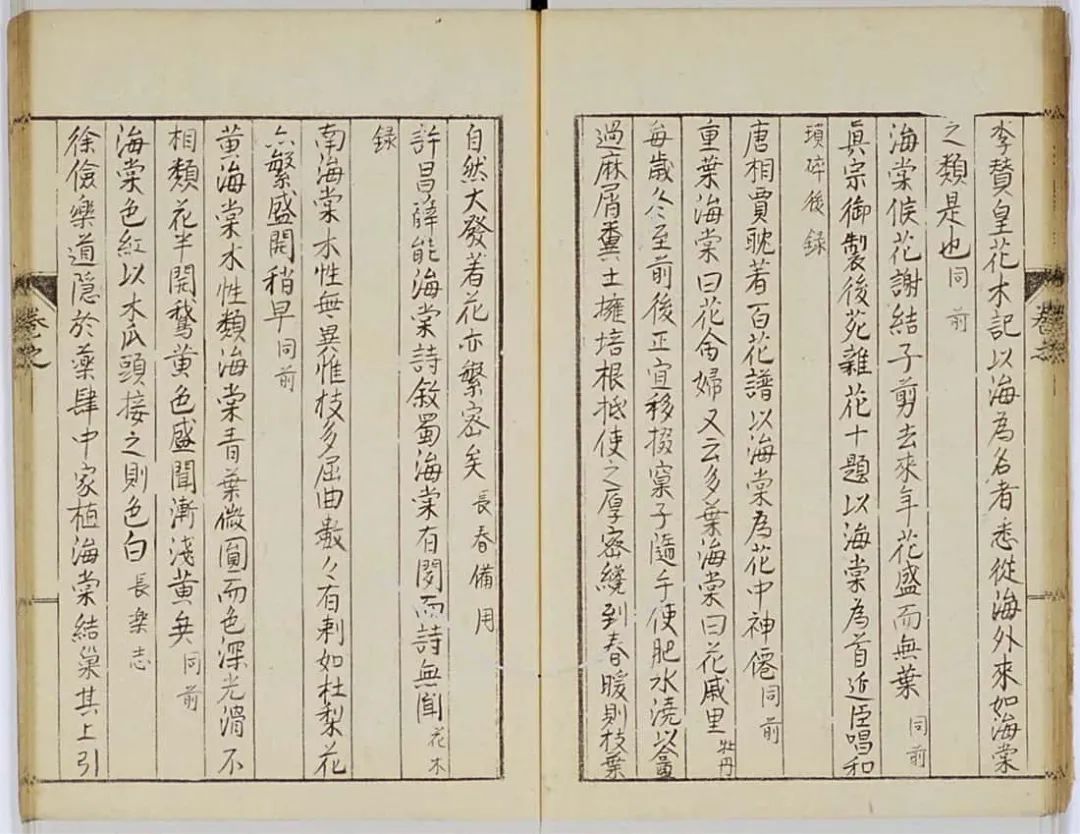 李贊皇花木記以海為名者悉從海外來如海棠
之類是也同前
海棠候花謝結子剪去來年花盛而無葉同前
真宗御製後苑雜花十題以海棠為首近臣唱和
瑣碎後録
唐相賈耽著百花譜以海棠為花中神僊同前
重葉海棠曰花命婦又云多葉海棠曰花戚里牡丹
每歲冬至前後正宜移掇窠子隨手使肥水澆以盦
過麻屑糞土擁培根柢使之厚密纔到春暖則枝葉
自然大發著花亦繁密矣長春備用
許昌薛能海棠詩敘蜀海棠有聞而詩無聞花木
録
南海棠木性無異惟枝多屈曲數々有刺如杜梨花
亦繁盛開稍早同前
黄海棠木性類海棠青葉微圓而色深光滑不
相類花半開鵝黄色盛開漸淺黄矣同前
海棠色紅以木瓜頭接之則色白長樂志
徐儉樂道隱於藥肆中家植海棠結巢其上引